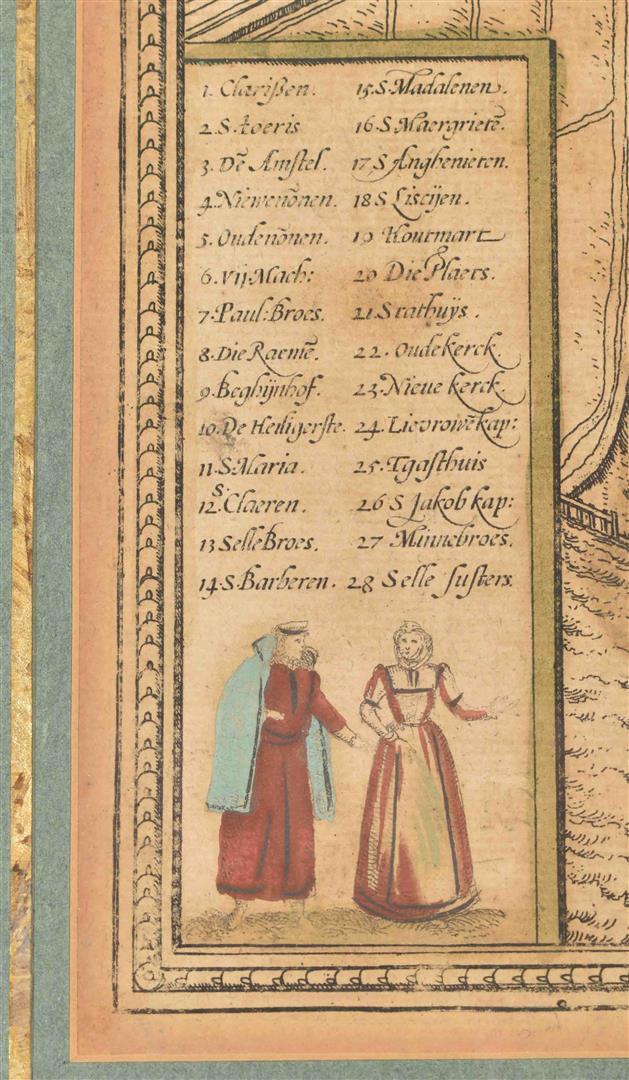 1. Clarißen.
2. S. toeris
3. Dē Amstel.
4. Niewenōnen.
5. Oudenōnen.
6. vij Mach:
7. Paul: Broes.
8. Die Raemē.
9. Beghijnhof.
10. De Heiligerste.
11. S. Maria.
12. S. Claeren.
13 Selle Broes.
14. S. Barberen.
15. S. Madalenen.
16. S. Maergrietē.
17. S Anghenieten.
18 S Liscijen.
19 Koutmart
20 Die Plaets.
21 Stathuÿs.
22. Oude kerck
23. Nieue kerck.
24. Lievrowē kap:
25. Tgasthuis
26 S Jakob kap:
27 Minnebroes.
28 Selle susters.